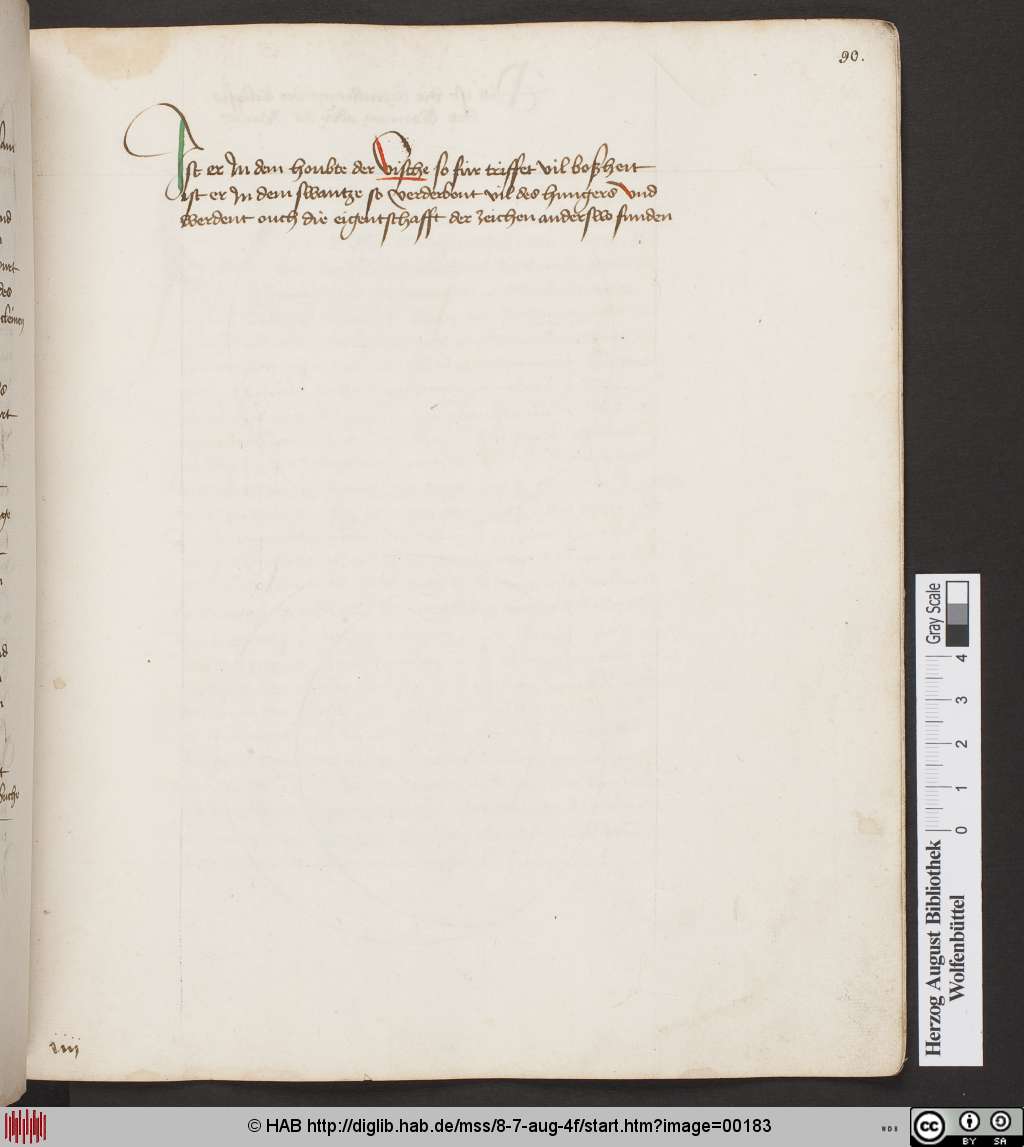 90.
Ist er In dem houbte der vische so für triffet vil boßheit
ist er In dem swantze so verderbont vil des hungers vnd
werdent ouch die eigentschafft der zeichen anderswo funden
Gray Scale
0 1 2 3 4
Herzog August Bibliothek
Wolfenbüttel
© HAB http://diglib.hab.de/mss/8-7-aug-4f/start.htm?image=00183
WDB
cc BY SA